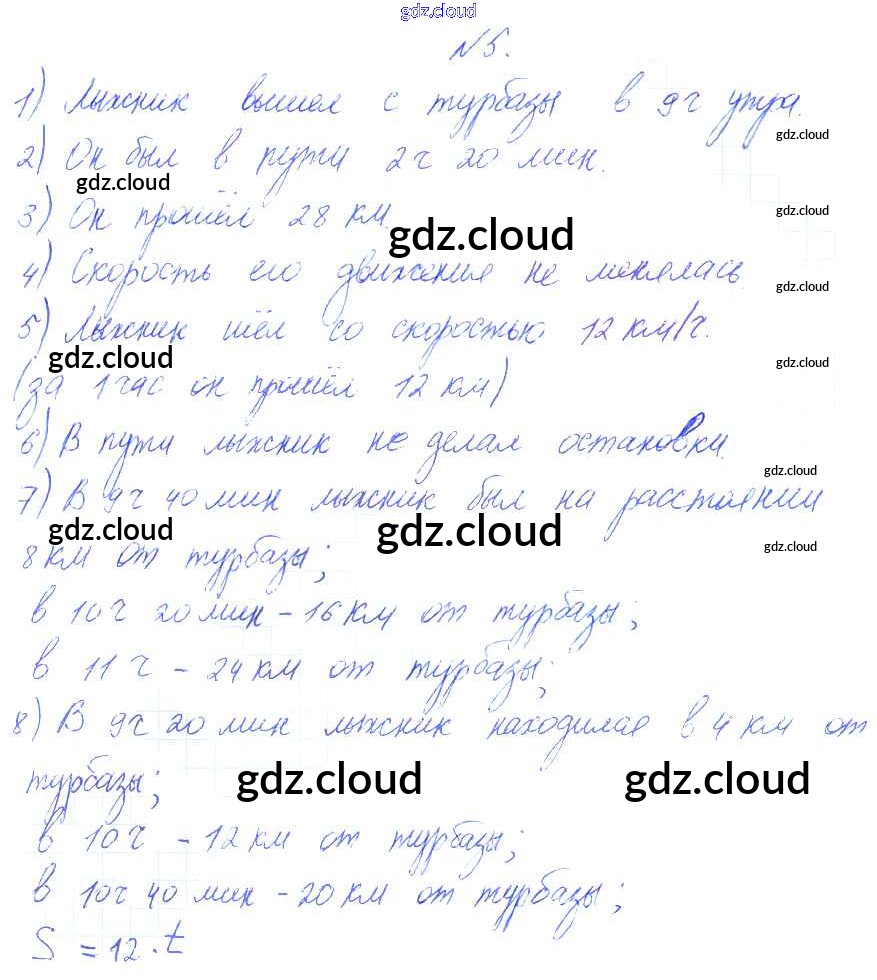 gdz.cloud
№5.
1) Лыжник вышел с турбазы в 9 ч утра.
gdz.cloud
2) Он был в пути 2 ч 20 мин.
gdz.cloud
3) Он прошёл 28 км.
gdz.cloud
gdz.cloud
4) Скорость его движения не менялась.
gdz.cloud
5) Лыжник шёл со скоростью 12 км/ч.
gdz.cloud
gdz.cloud
(за 1 час он прошёл 12 км)
6) В пути лыжник не делал остановки.
gdz.cloud
7) В 9ч 40 мин лыжник был на расстоянии
gdz.cloud
gdz.cloud
gdz.cloud
8 км от турбазы;
в 10 ч 20 мин - 16 км от турбазы;
в 11 ч - 24 км от турбазы;
8) В 9ч 20 мин лыжник находился в 4 км от
турбазы;
gdz.cloud
gdz.cloud
в 10 ч - 12 км от турбазы;
в 10ч 40 мин - 20 км от турбазы;
S = 12 · t